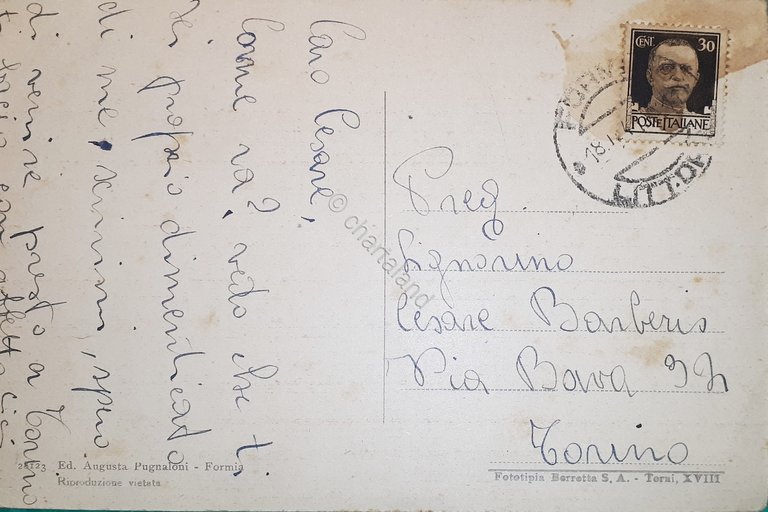 Caro Cesare,
Come va?, vedo che ti
sei proprio dimenticato
di me, scrivimi, spero
di venire presto a Torino
ti bacio con affetto
CENT. 30
POSTE ITALIANE
18.1
Preg.
Signorino
Cesare Barberis
Via Bava
Torino
28123 Ed. Augusta Pugnaloni - Formia
Riproduzione vietata
Fototipia Berretta S. A. - Terni, XVIII
© chartaland